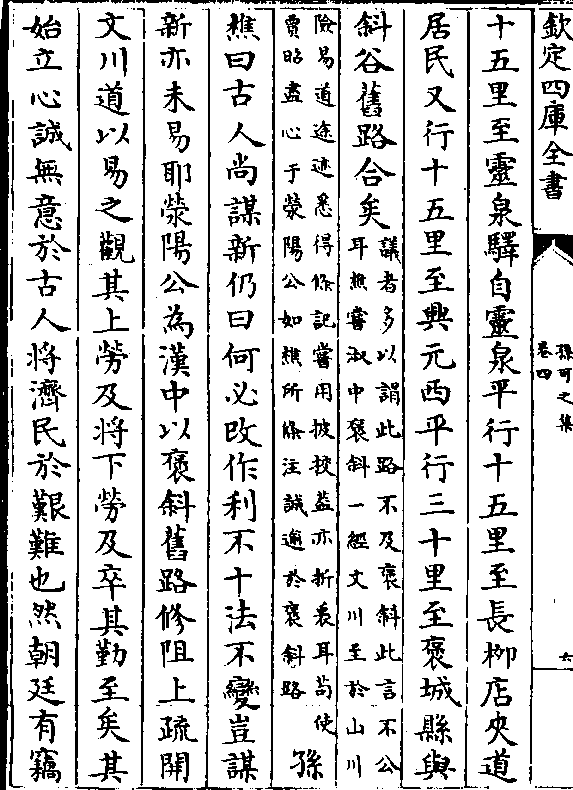 欽定四庫全書
孫可之集
卷四
六
十五里至靈泉驛自靈泉平行十五里至長柳店夾道
居民又行十五里至興元西平行三十里至褒城縣與
斜谷舊路合矣
議者多以謂此路不及褒斜此言不公
耳樵嘗淑中褒斜一經文川至於山川
險易道途迹悉得條記嘗用披挍益亦折衷耳茍使
賈昭盡心于滎陽公如樵所條注誠逾於褒斜路
孫
樵曰古人尚謀新仍曰何必改作利不十法不變豈謀
新亦未易耶滎陽公為漢中以褒斜舊路修阻上疏開
文川道以易之觀其上勞及將下勞及卒其勤至矣其
始立心誠無意於古人將濟民於艱難也然朝廷有竊